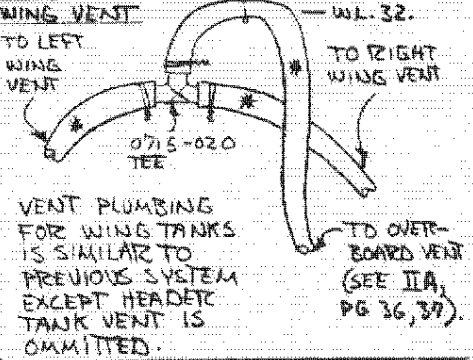 WING VENT
WL. 32.
TO LEFT
WING
VENT
TO RIGHT
WING VENT
0715-020
TEE
VENT PLUMBING
FOR WING TANKS
IS SIMILAR TO
PREVIOUS SYSTEM
EXCEPT HEADER
TANK VENT IS
OMMITTED.
TO OVER-
BOARD VENT
(SEE IIA,
PG 36, 37).